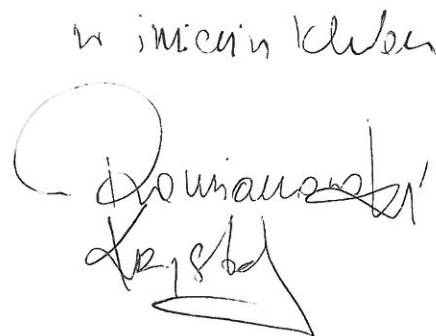 w imieniu klubu
Romianowski
Krzysztof